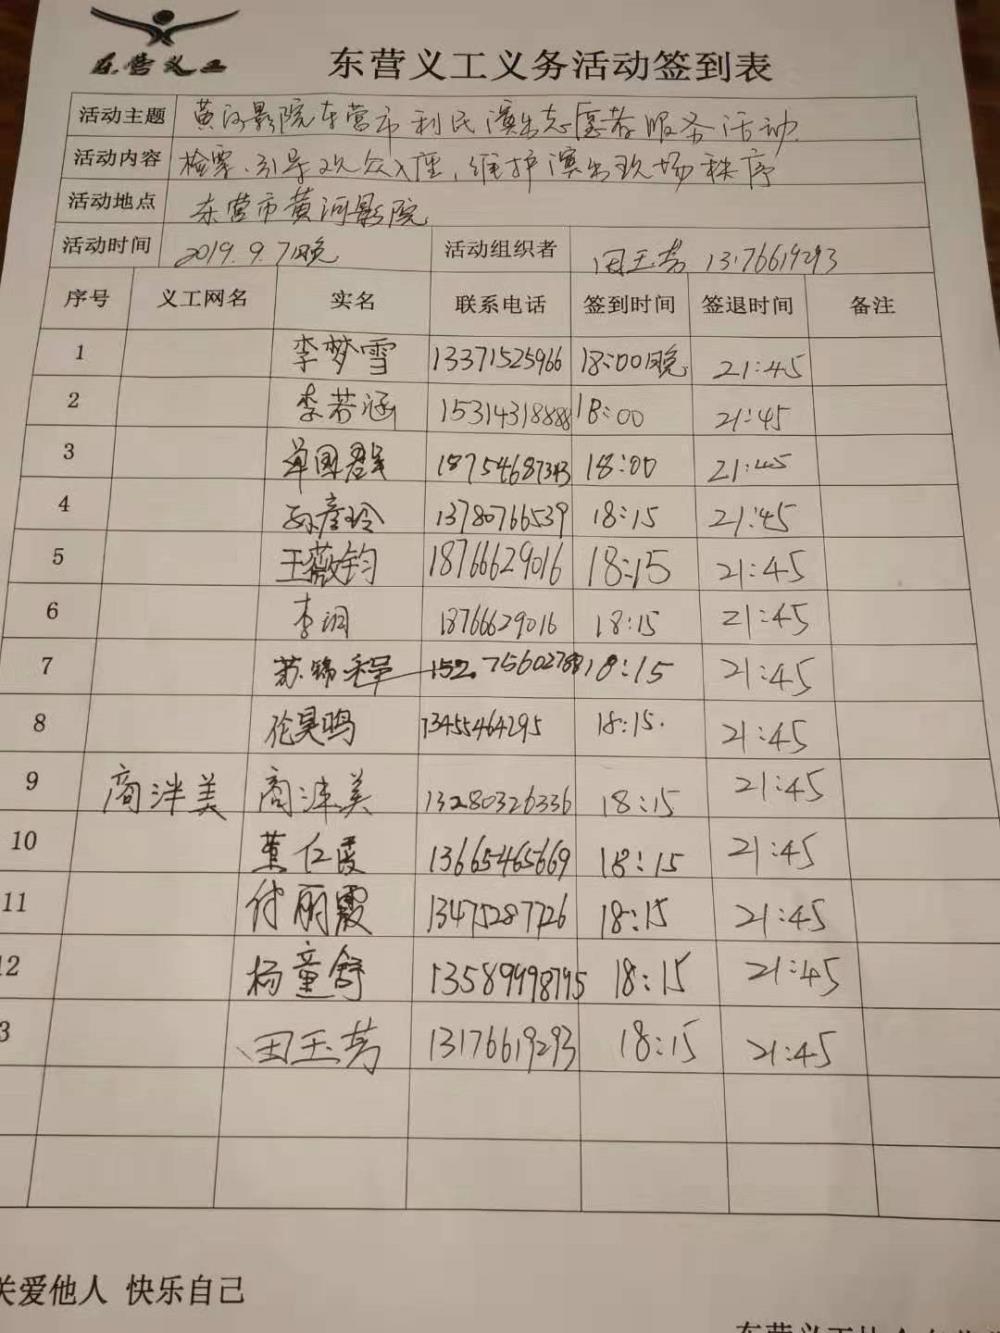 东营义工
东营义工义务活动签到表
活动主题 黄河影院东营市利民演出志愿者服务活动
活动内容 检票、引导观众入座,维护演出现场秩序
活动地点 东营市黄河影院
活动时间 2019.9.7日晚 活动组织者 田玉芳 13176619293
序号 义工网名 实名 联系电话 签到时间 签退时间 备注
1 李梦雪 13371525966 18:00晚 21:45
2 李若涵 15314318888 18:00 21:45
3 单国君 18754687343 18:00 21:45
4 孙彦玲 13780766539 18:15 21:45
5 王薇钧 18766629016 18:15 21:45
6 李润 18766629016 18:15 21:45
7 苏锦程 15275602788 18:15 21:45
8 伦昊鸣 13455464295 18:15. 21:45
9 商泮美 商泮美 13280326336 18:15 21:45
10 董仁霞 13665465669 18:15 21:45
11 付丽霞 13475287726 18:15 21:45
12 杨童舒 13589998795 18:15 21:45
3 田玉芳 13176619293 18:15 21:45
关爱他人 快乐自己